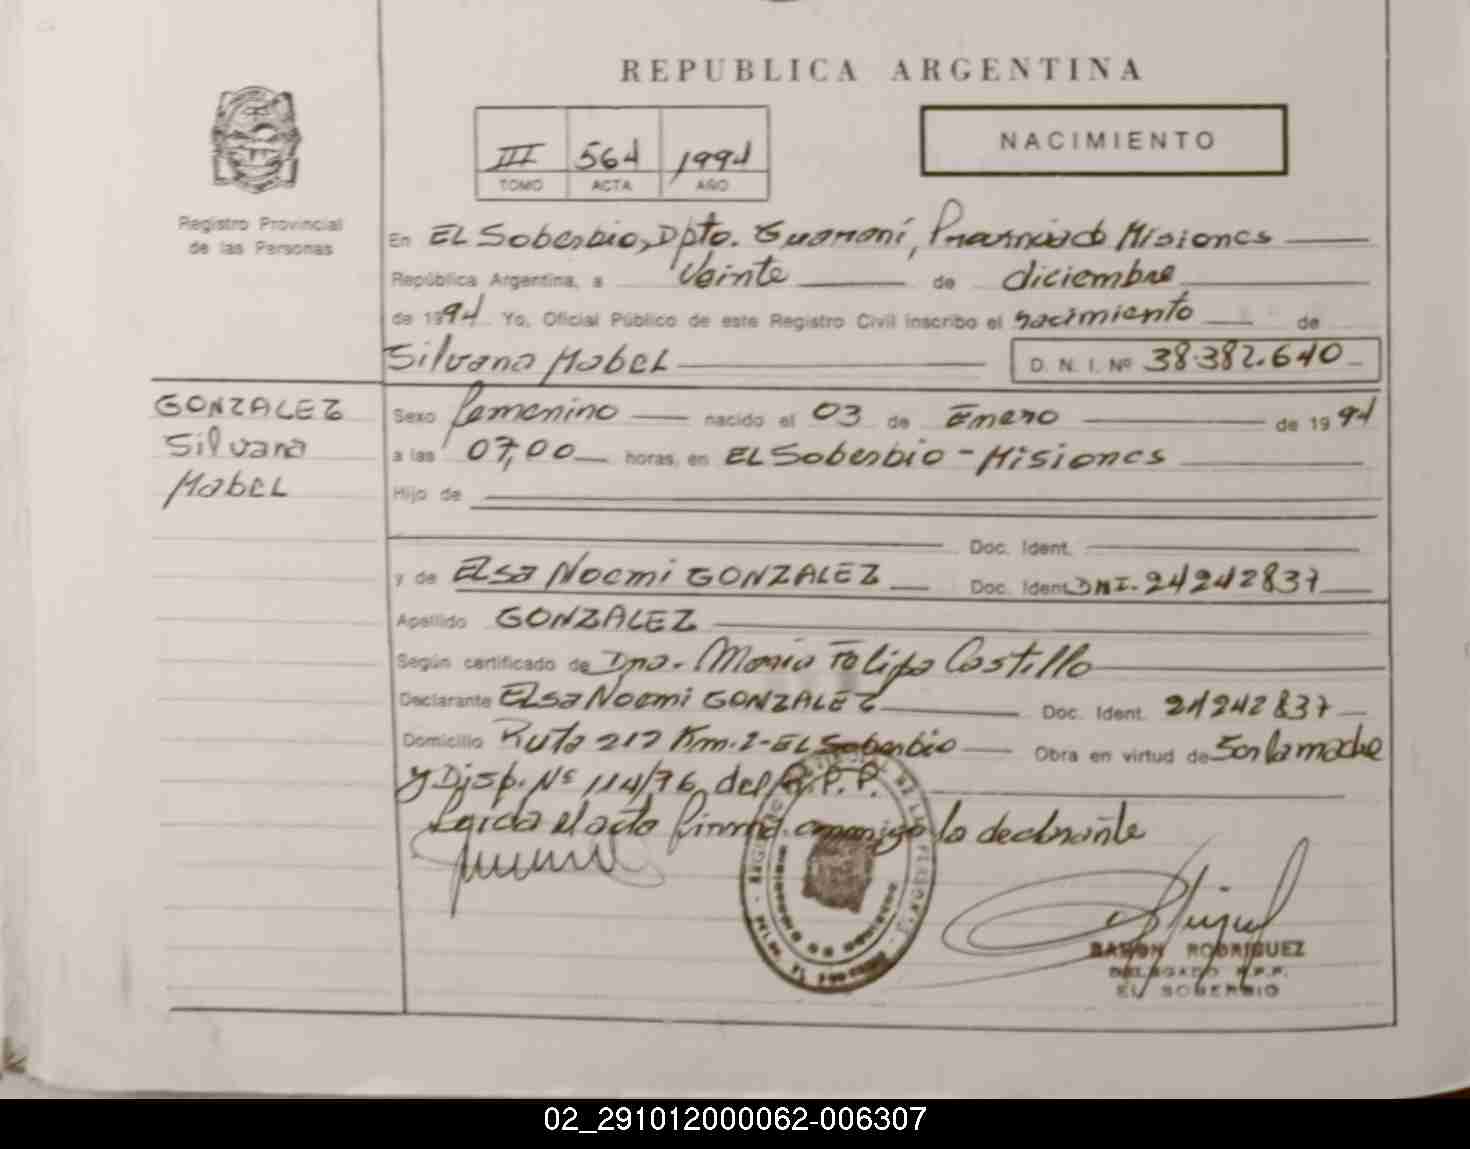 REPUBLICA ARGENTINA
NACIMIENTO
III 564 1994
TOMO ACTA AÑO
Registro Provincial
de las Personas
En EL Soberbio, Dpto. Guaraní, Provincia de Misiones
República Argentina, a Veinte de diciembre
de 1994 Yo, Oficial Público de este Registro Civil inscribo el nacimiento de
Silvana Mabel D. N. I. Nº 38.382.640
GONZALEZ
Silvana
Mabel
Sexo femenino nacido el 03 de Enero de 1994
a las 07,00 horas, en EL Soberbio - Misiones
Hijo de
Doc. Ident.
y de Elsa Noemi GONZALEZ Doc. Ident. DNI. 24242837
Apellido GONZALEZ
Según certificado de Dña. Maria Felipa Castillo
Declarante Elsa Noemi GONZALEZ Doc. Ident. 24242837
Domicilio Ruta 212 Km. 2 - EL Soberbio Obra en virtud de Ser la madre
y Disp. Nº 114/76 del R.P.P.
Leida el acta firma conmigo la declarante
RAMON RODRIGUEZ
DELEGADO R.P.P.
EL SOBERBIO
02_291012000062-006307